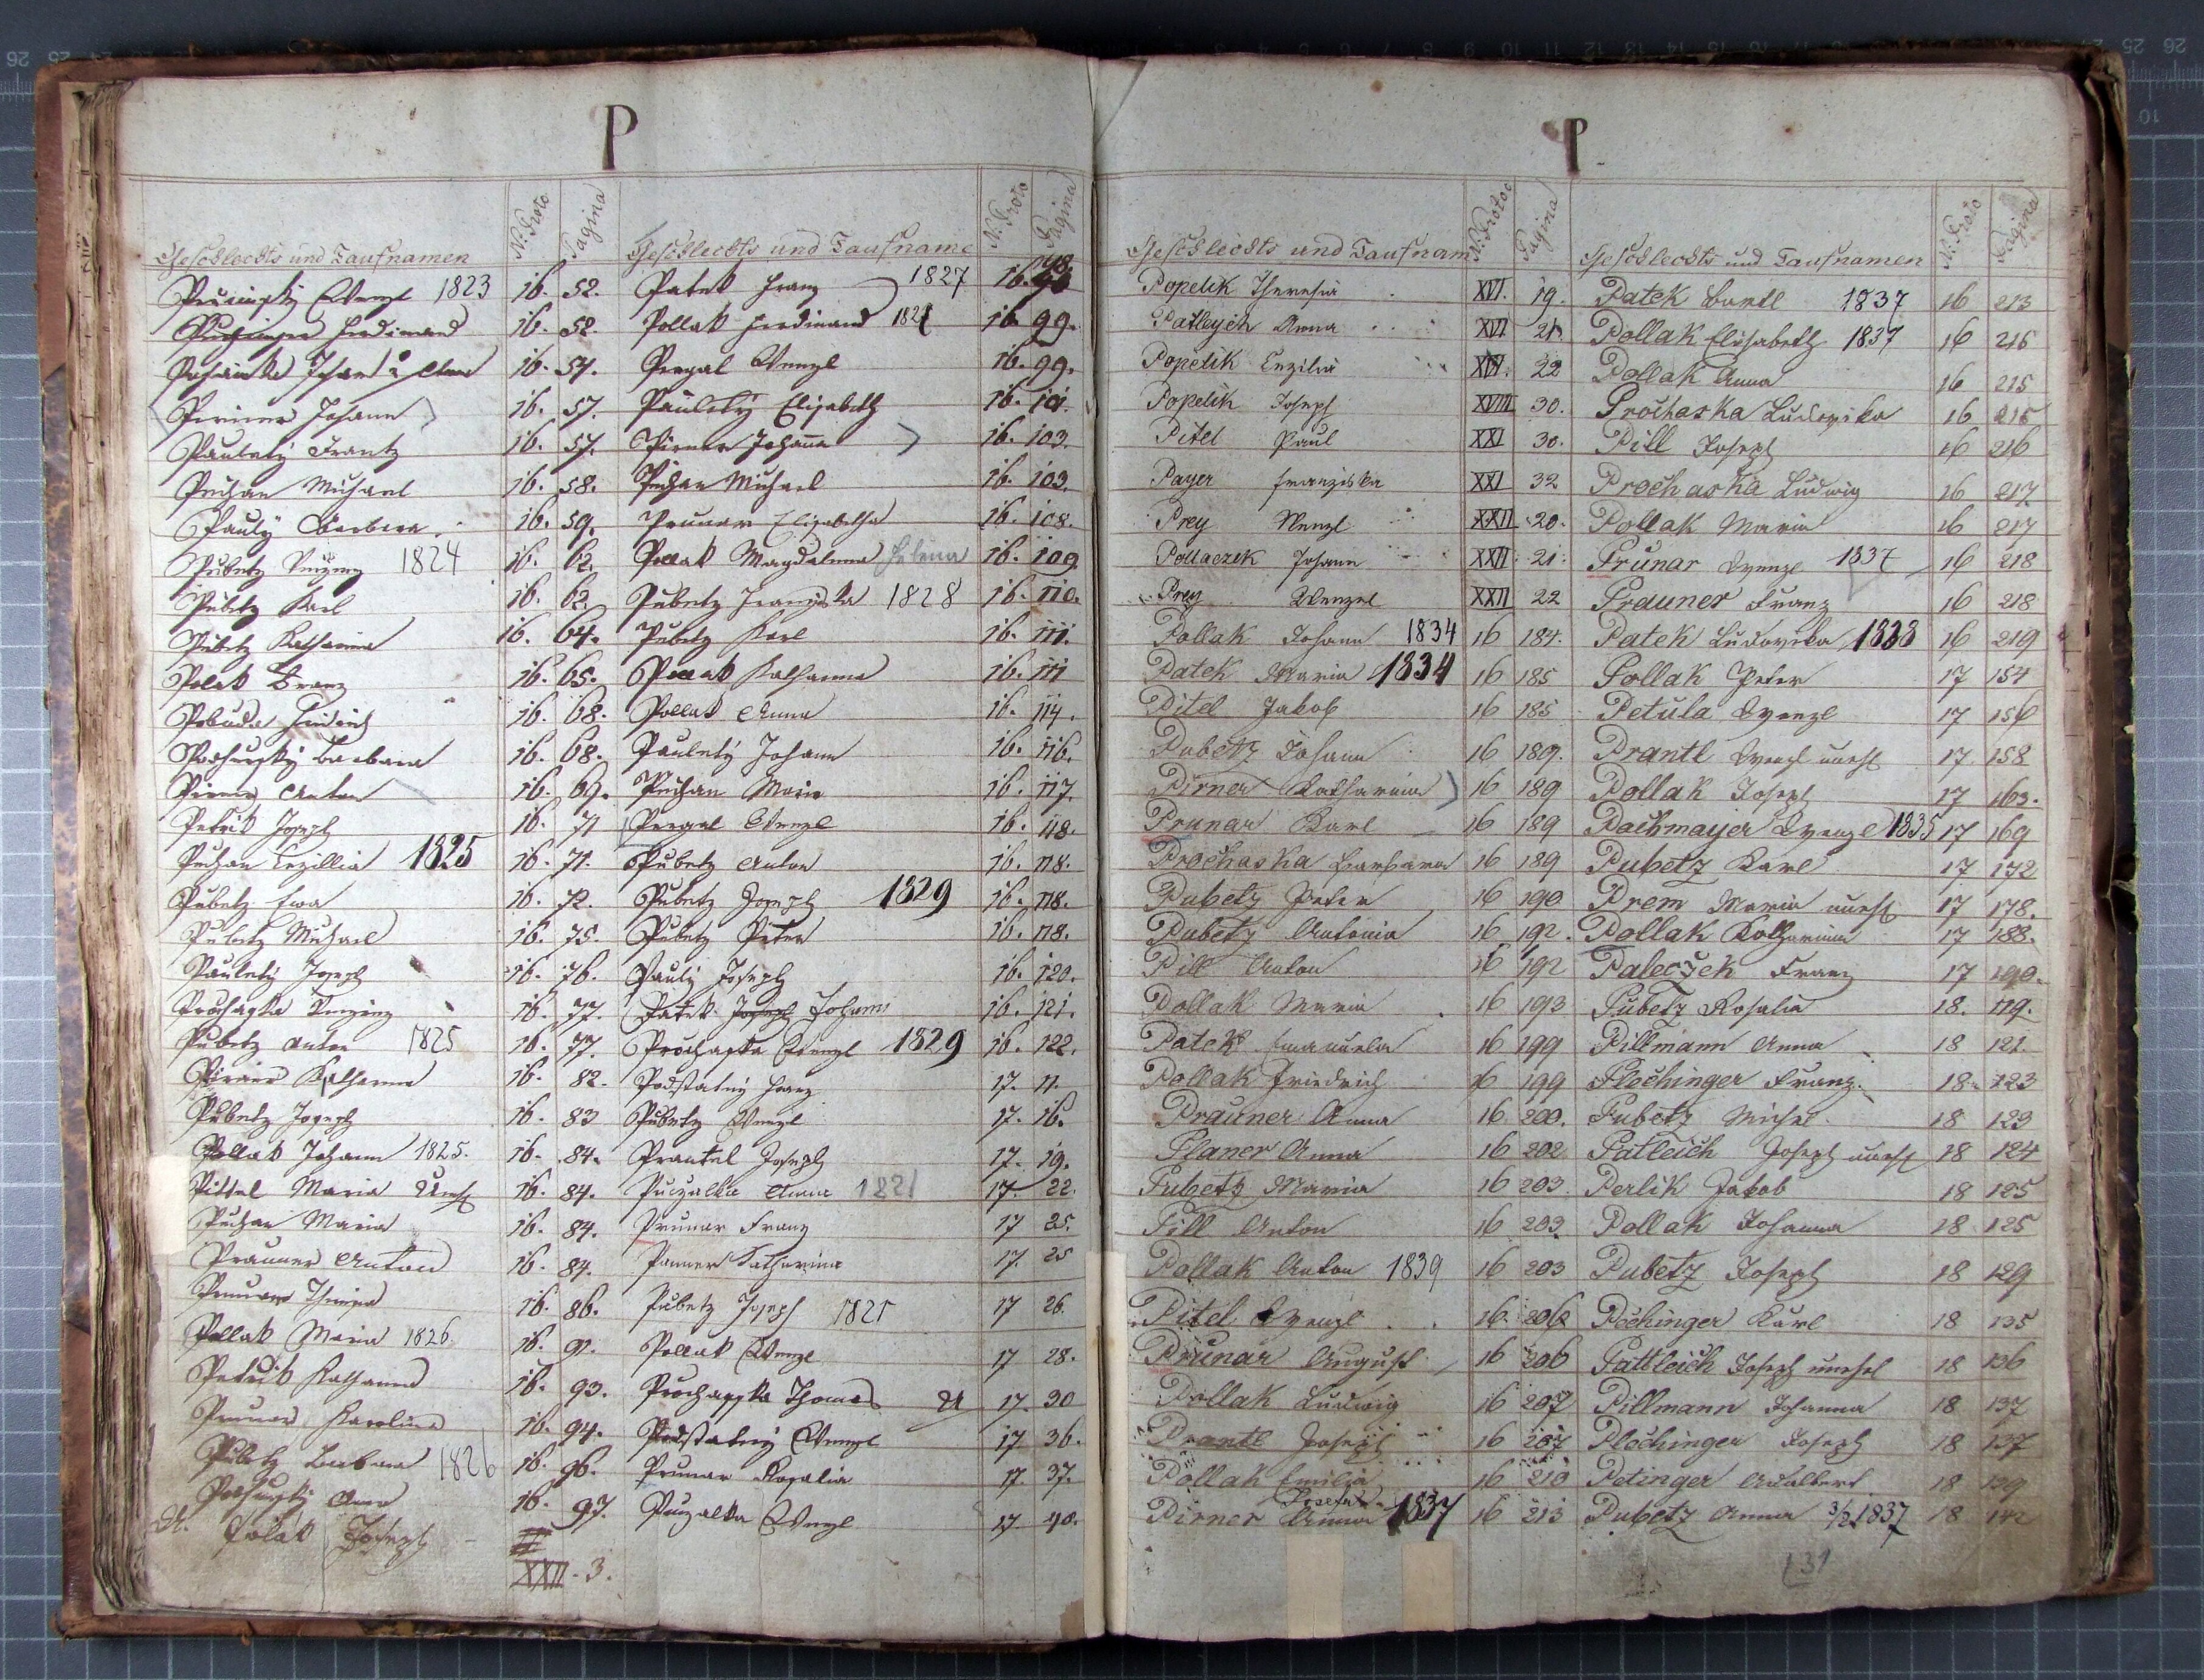 P
Geschlechts und Taufnamen
N: Proto
Pagina
Wenzl 1823 16. 52.
Ferdinand 16. 52.
16. 57.
Pirner Johann 16. 57.
Pauletz Frantz 16. 57.
Puchan Michael 16. 58.
Pauly Barbara 16. 59.
Pubetz 1824 16. 62.
Pubetz Karl 16. 62.
Pubetz Katharina 16. 64.
Polak Franz 16. 65.
Pobuda 16. 68.
Barbara 16. 68.
Pirner Anton 16. 69.
Petrik Joseph 16. 71
Puchan Cezillia 1825 16. 71.
Pubetz Eva 16. 72.
Pubetz Michael 16. 75.
Pauletÿ Joseph 16. 76.
Prochaska 16. 77.
Pubetz Anton 1825 16. 77.
Pirner Katharina 16. 82.
Pubetz Joseph 16. 83
Pollak Johann 1825. 16. 84.
Pittel Maria 16. 84.
Puchan Maria 16. 84.
Prauner Anton 16. 84.
Prunar 16. 86.
Pollak Maria 1826 16. 91.
Petrik Katharina 16. 93.
Prunar Karolina 16. 94.
Pubetz Barbara 1826 16. 96.
Anna 16. 97.
Polak Joseph XXII. 3.
Geschlechts und Taufname
N: Proto
Pagina
Patek Franz 1827 16. 98
Pollak Ferdinand 16. 99.
Pregal Wenzl 16. 99.
Pauletÿ Elisabeth 16. 101.
Pirner Johann 16. 103.
Puchan Michael 16. 103.
Prunar Elisabetha 16. 108.
Pollak Magdalena Helena 16. 109
Pubetz Franziska 1828 16. 110.
Pubetz Karl 16. 111.
Pollak Katharina 16. 111
Pollak Anna 16. 114.
Pauletÿ Johann 16. 116.
Puchan Maria 16. 117.
Pregal Wenzl 16. 118.
Pubetz Anton 16. 118.
Pubetz Joseph 1829 16. 118.
Pubetz Peter 16. 118.
Paulÿ Joseph 16. 120.
Patek Joseph Johann 16. 121.
Prochaska Wenzl 1829 16. 122.
Podstatnÿ Franz 17. 11.
Pubetz Wenzl 17. 16.
Prantel Joseph 17. 19.
Puczalka Anna 1821 17. 22.
Prunar Franz 17 25.
Panner Katharina 17. 25
Pubetz Joseph 1821 17 26.
Pollak Wenzl 17 28.
Prochaska Thomas 17. 30
Podstatnÿ Wenzl 17. 36.
Prunar Rosalia 17. 37.
Puczalka Wenzl 17 40.
P
Geschlechts und Taufnam
N: Protoc
Pagina
Popelik Theresia XVI. 19.
Patleych Anna XVI 21.
Popelik Cezilia XVI. 22
Popelik Joseph XVIII 30.
Pitel Paul XXI 30.
Payer Franziska XXI 32
Prey Wenzl XXII 20.
Pollaczek Johann XXII. 21.
Prey Wenzel XXII 22
Pollak Johann 1834 16 184.
Patek Maria 1834 16 185
Pitel Jakob 16 185
Pubetz Johann 16 189.
Pirner Katharina 16 189
Prunar Karl 16 189
Prochaska Barbara 16 189
Pubetz Peter 16 190
Pubetz Antonia 16 192.
Pill Anton 16 192
Pollak Maria 16 193
Patek Emanuela 16 199
Pollak Friedrich 16 199
Prauner Anna 16. 200.
Planer Anna 16 202
Pubetz Maria 16 203
Pill Anton 16 203
Pollak Anton 1839 16 203
Pitel Wenzl 16. 206
Prunar August 16 206
Pollak Ludwig 16 207
Prantl Joseph 16 207
Pollak Emilia 16 210
Pirner Anna Josefa 1837 16 213
Geschlechts und Taufnamen
N: Proto
Pagina
Patek Bartl 1837 16 213
Pollak Elisabeth 1837 16 215
Pollak Anna 16 215
Prochaska Ludovika 16 215
Pill Joseph 16 216
Prochaska Ludwig 16 217
Pollak Maria 16 217
Prunar Wenzl 1837 16 218
Prauner Franz 16 218
Patek Ludovika 1838 16 219
Pollak Peter 17 154
Petula Wenzl 17 156
Prantl Wenzl unehl 17 158
Pollak Joseph 17 163.
Pachmayer Wenzl 1835 17 169
Pubetz Karl 17 172
Prem Maria unehl 17 178.
Pollak Katharina 17 188.
Paleczek Franz 17 190.
Pubetz Rosalia 18. 119.
Pillmann Anna 18 121.
Plechinger Franz 18. 123
Pubetz Michel 18 123
Patleich Joseph unehl 18 124
Perlik Jakob 18 125
Pollak Johanna 18 125
Pubetz Joseph 18 129
Pechinger Karl 18 135
Pattleich Joseph unehel 18 136
Pillmann Johanna 18 137
Plechinger Joseph 18 137
Petinger Adalbert 18 139
Pubetz Anna 3/2 1837 18 142
131